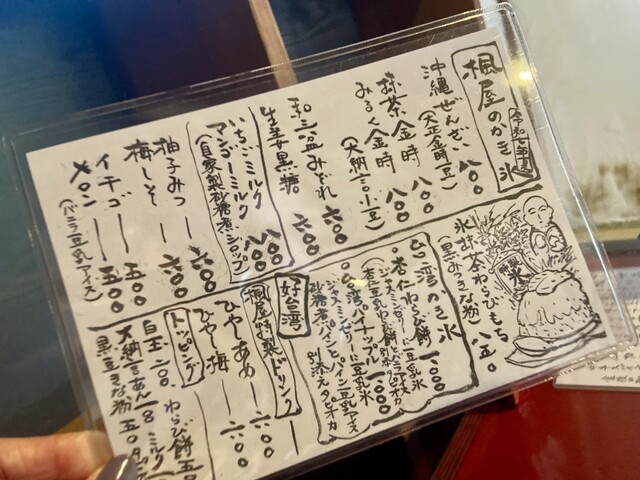 楓屋のかき氷
令和七年夏
沖縄ぜんざい 八〇〇
(大正金時豆)
抹茶金時 八〇〇
みるく金時 八〇〇
(大納言小豆)
和三盆みどれ 六〇〇
生姜黒糖
いちごミルク 八〇〇
マンゴーミルク 八〇〇
(自家製砂糖煮シロップ)
柚子みつ 六〇〇
梅しそ 五〇〇
イチゴ 五〇〇
メロン
(バニラ豆乳アイス)
氷
氷抹茶わらびもち 八五〇
(黒みつきな粉)
台湾かき氷
杏仁わらび餅 一〇〇〇
ジャスミンゼリーに豆乳氷
台湾パイナップル 一〇〇〇
ジャスミンゼリーに豆乳氷
砂糖煮パインとパイン豆乳アイス
別添えタピオカ
好台湾
楓屋特製ドリンク
ひやしあめ 六〇〇
ひやし梅 六〇〇
トッピング
白玉 二〇〇
わらび餅
大納言あん
ミルク
黒豆きな粉 五〇